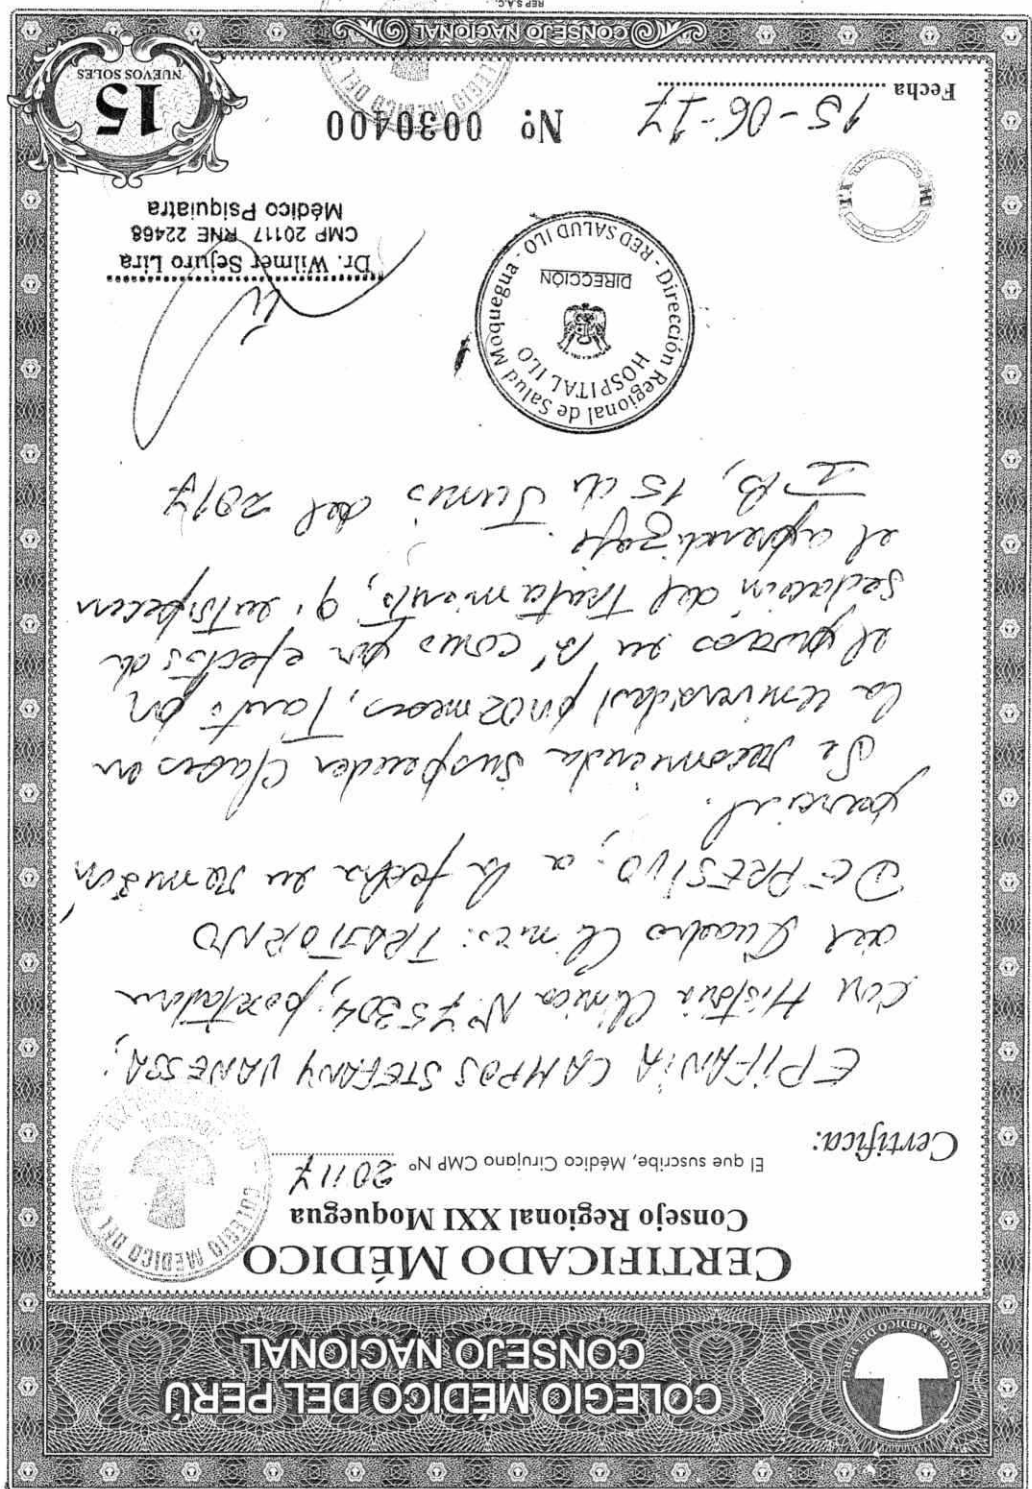 COLEGIO MÉDICO DEL PERÚ
CONSEJO NACIONAL
COLEGIO MEDICO DEL PERU
CERTIFICADO MÉDICO
Consejo Regional XXI Moquegua
El que suscribe, Médico Cirujano CMP Nº 20117
Certifica:
COLEGIO MEDICO DEL PERU
EPIFANIA CAMPOS STEFANY VANESSA;
con Historia Clinica Nº 75304, portadora
del Cuadro Clinico: TRASTORNO
DEPRESIVO, a la fecha en remisión
parcial.
Se recomienda suspender Clases en
la Universidad por 02 meses, Tanto por
el proceso en sí, como por efectos de
sedación del tratamiento, q'
el aprendizaje.
15 de Junio del 2017
Dirección Regional de Salud Moquegua - RED SALUD ILO
HOSPITAL ILO
DIRECCIÓN
Dr. Wilmer Sejuro Lira
CMP 20117 RNE 22468
Médico Psiquiatra
Fecha 15-06-17
Nº 0030400
15
NUEVOS SOLES
COLEGIO MEDICO DEL
CONSEJO NACIONAL
REP S.A.C.